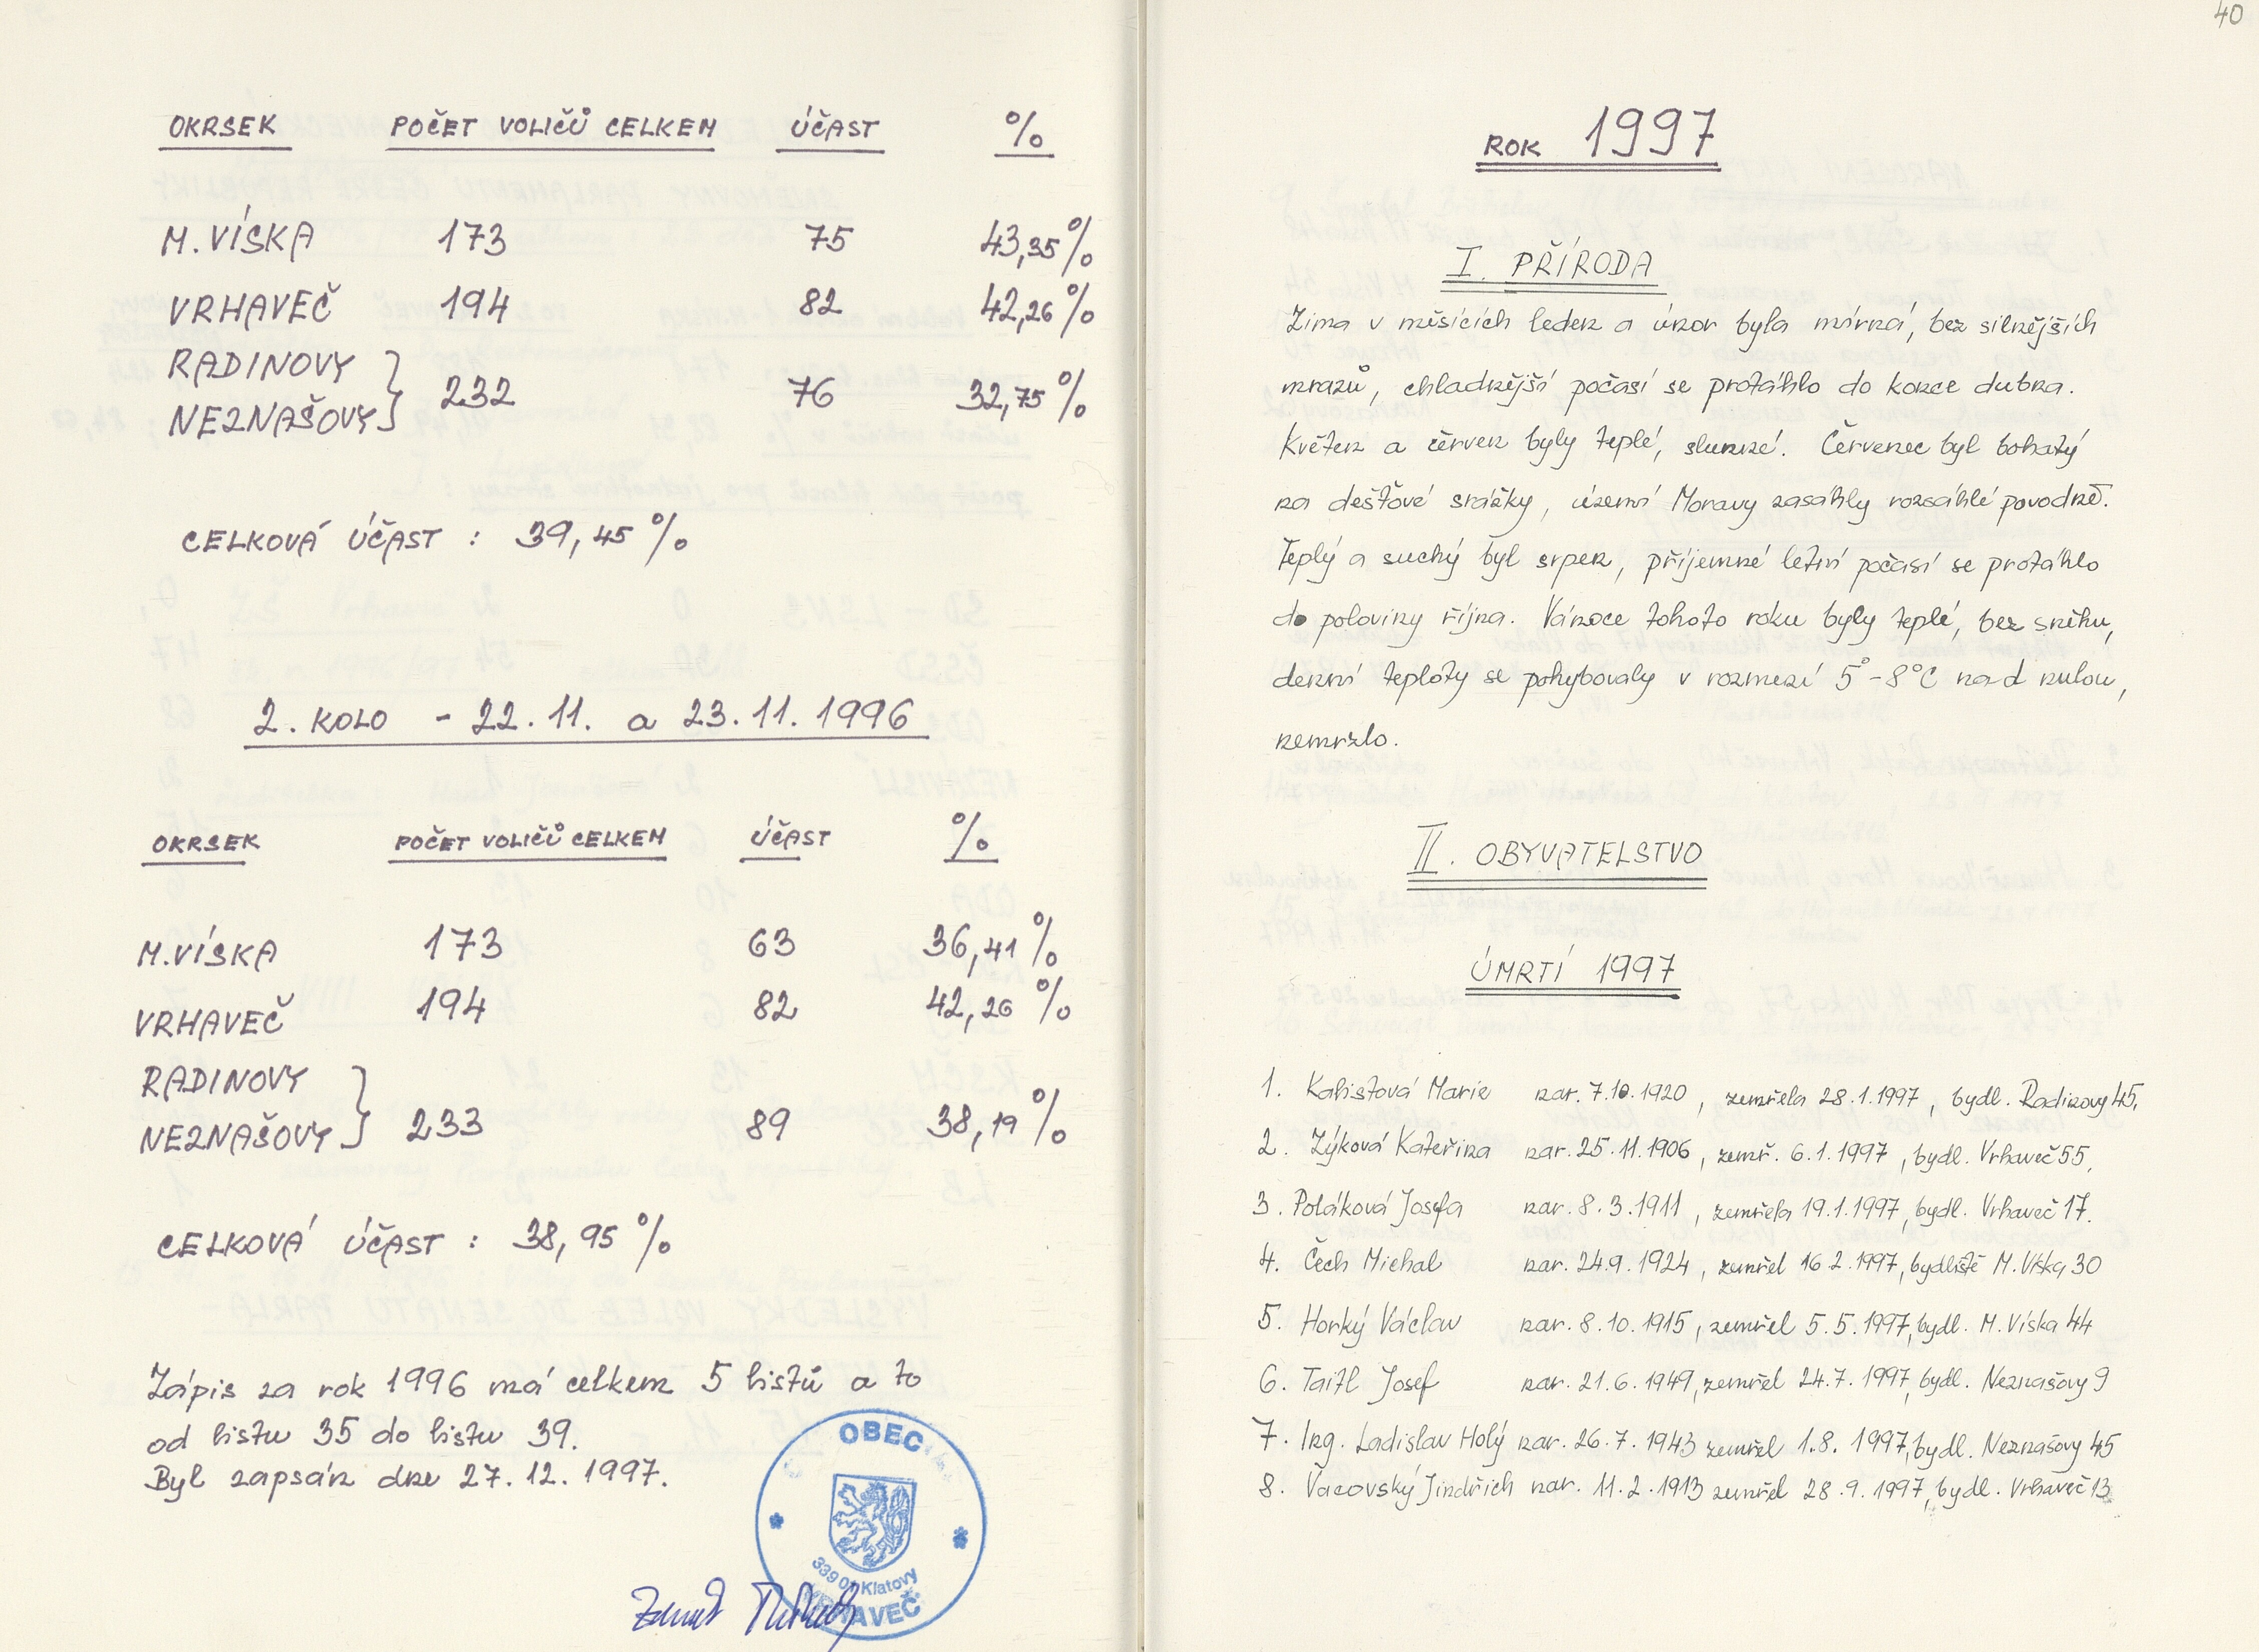 OKRSEK POČET VOLIČŮ CELKEM ÚČAST %
M. VÍSKA 173 75 43,35 %
VRHAVEČ 194 82 42,26 %
RADINOVY
NEZNAŠOVY } 232 76 32,75 %
CELKOVÁ ÚČAST : 39,45 %
2. KOLO - 22.11. a 23.11.1996
OKRSEK POČET VOLIČŮ CELKEM ÚČAST %
M. VÍSKA 173 63 36,41 %
VRHAVEČ 194 82 42,26 %
RADINOVY
NEZNAŠOVY } 233 89 38,19 %
CELKOVÁ ÚČAST : 38,95 %
Zápis za rok 1996 má celkem 5 listů a to
od listu 35 do listu 39.
Byl zapsán dne 27. 12. 1997.
OBEC
339 01 Klatovy
VRHAVEČ
40
ROK 1997
I. PŘÍRODA
Zima v měsících leden a únor byla mírná, bez silnějších
mrazů, chladnější počasí se protáhlo do konce dubna.
Květen a červen byly teplé, slunné. Červenec byl bohatý
na dešťové srážky, území Moravy zasáhly rozsáhlé povodně.
Teplý a suchý byl srpen, příjemné letní počasí se protáhlo
do poloviny října. Vánoce tohoto roku byly teplé, bez sněhu,
denní teploty se pohybovaly v rozmezí 5° - 8°C nad nulou,
nemrzlo.
II. OBYVATELSTVO
ÚMRTÍ 1997
1. Kalistová Marie nar. 7.10.1920, zemřela 28.1.1997, bydl. Radinovy 45,
2. Zýková Kateřina nar. 25.11.1906, zemř. 6.1.1997, bydl. Vrhaveč 55,
3. Poláková Josefa nar. 8.3.1911, zemřela 19.1.1997, bydl. Vrhaveč 17.
4. Čech Michal nar. 24.9.1924, zemřel 16 2.1997, bydliště M. Víska 30
5. Horký Václav nar. 8.10.1915, zemřel 5.5.1997, bydl. M. Víska 44
6. Taitl Josef nar. 21.6.1949, zemřel 24.7.1997, bydl. Neznašovy 9
7. Ing. Ladislav Holý nar. 26.7.1943 zemřel 1.8.1997, bydl. Neznašovy 45
8. Vacovský Jindřich nar. 11.2.1913 zemřel 28.9.1997, bydl. Vrhaveč 13